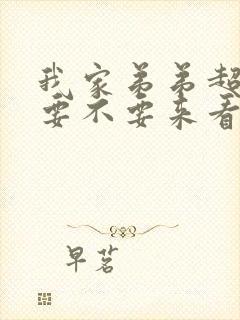 我家弟弟超
要不要来看
早茗